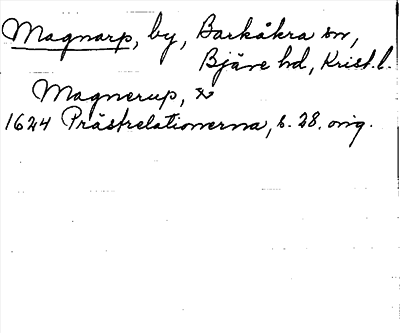 Magnarp, by, Barkåkra sn,
Bjäre hd, Krist.l.
Magnerup,
1624 Prästrelationerna, s. 28. orig.